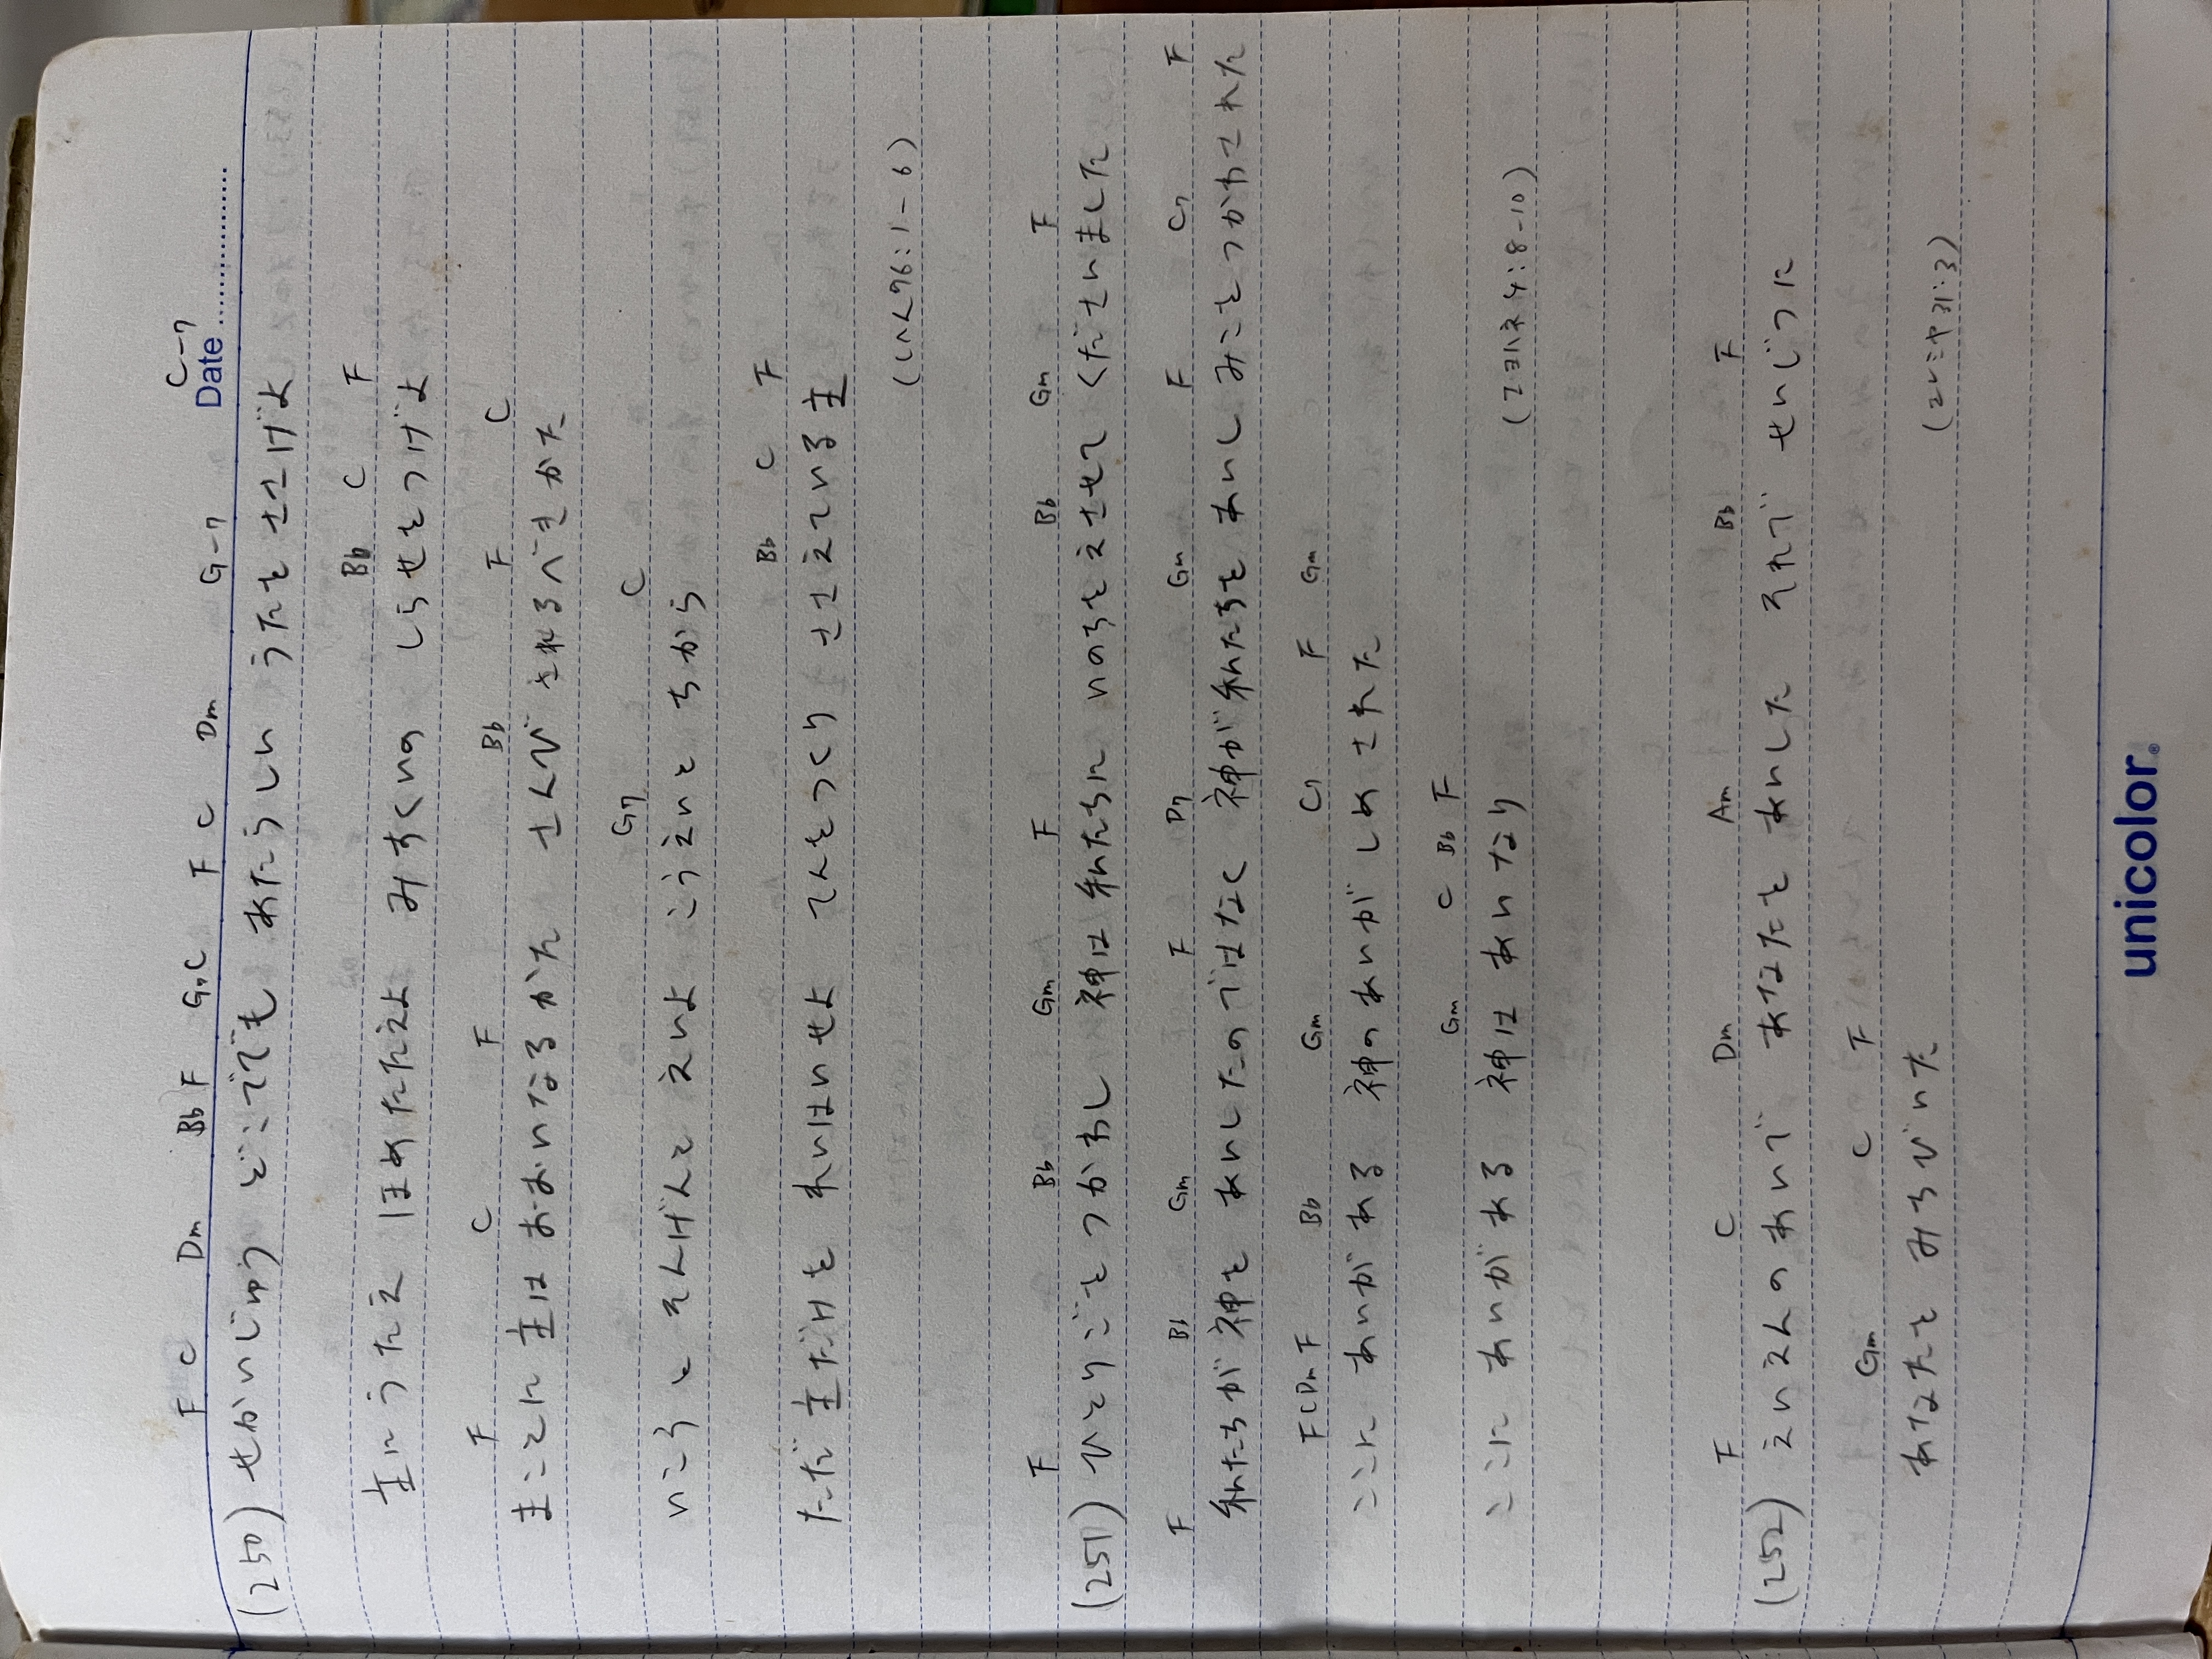 C-7
Date
F C Dm Bb F G7 C F C Dm G-7
(250) せかいじゅう どこででも あたらしい うたを ささげよ
Bb C F
主にうたえ ほめたたえよ みすくいの しらせをつげよ
F C F Bb F C
まことに 主は おおいなるかた さんび されるべきかた
G7 C
いこうと そんげんと えいよ こうえいと ちから
Bb C F
ただ 主だけを れいはいせよ てんをつくり ささえている主
(しへん96:1-6)
F Bb Gm F Bb Gm F
(251) ひとりごをつかわし 神は 私たちに いのちをえさせて くださいました
F Bb Gm F D7 Gm F C7 F
私たちが神を あいしたのではなく 神が私たちを あいし みこをつかわされた
F C Dm F Bb Gm C7 F Gm
ここに あいがある 神のあいがしめされた
Gm C Bb F
ここに あいがある 神は あいなり
(Iヨハネ4:8-10)
F C Dm Am Bb F
(252) えいえんのあいで あなたを あいした それで せいじつに
Gm C F
あなたを みちびいた
(エレミヤ31:3)
unicolor®